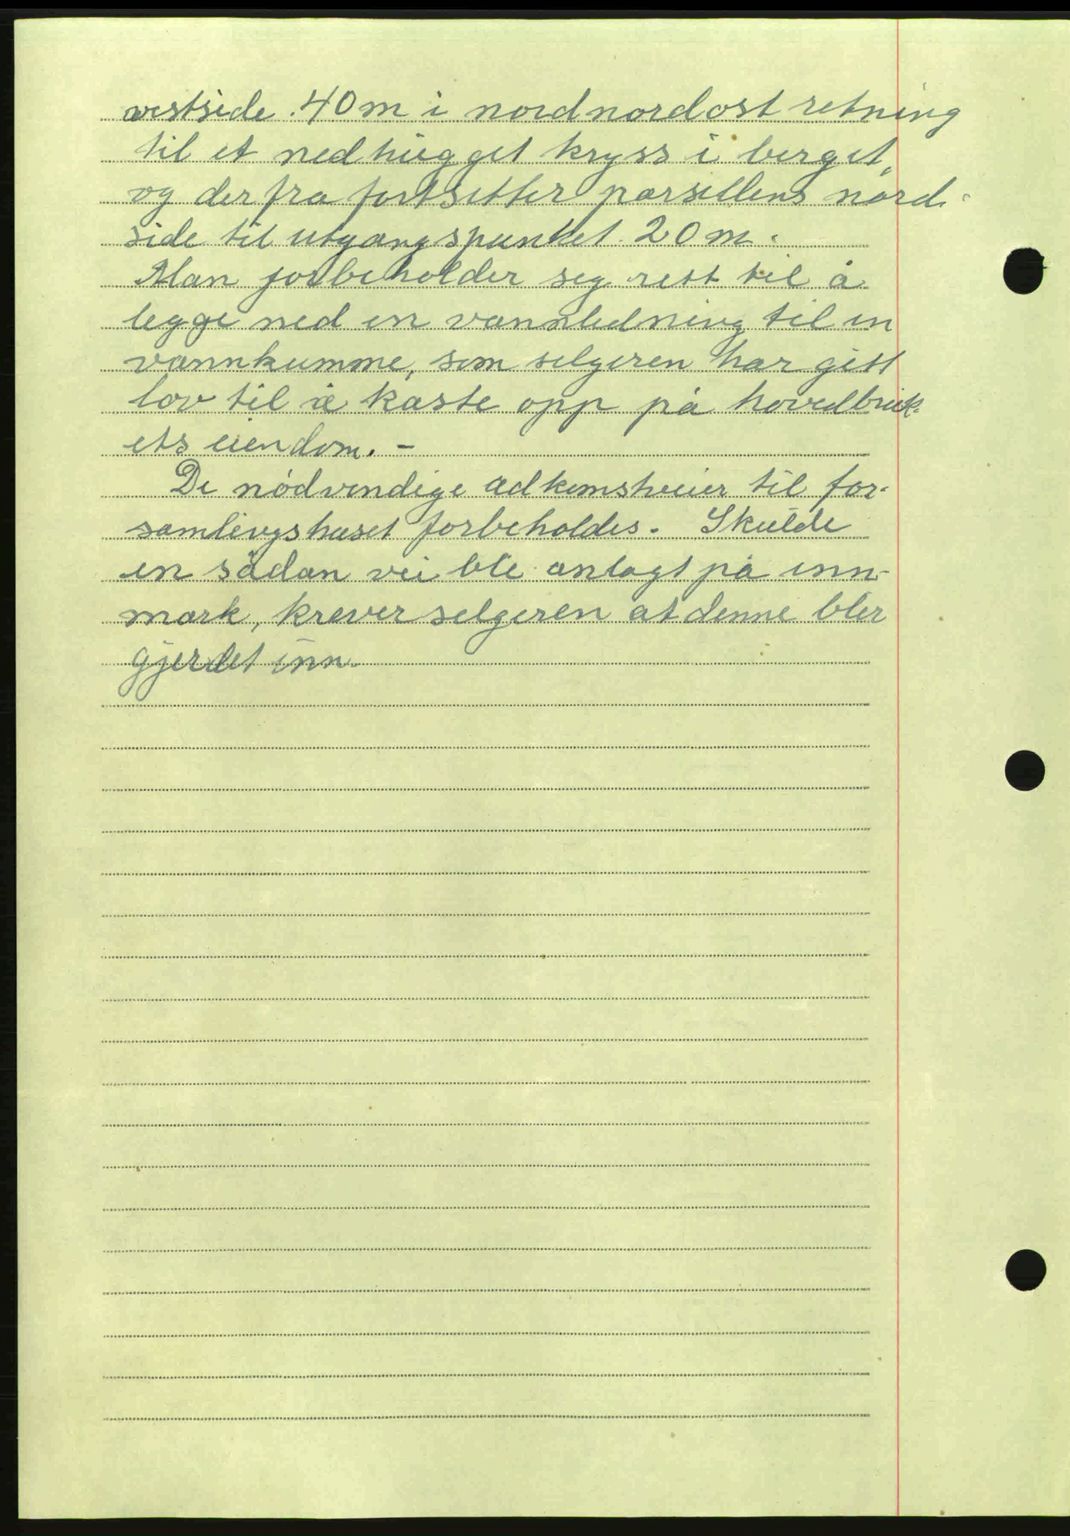 vestside. 40 m i nordnordost retning
til et nedhugget kryss i berget,
og derfra fortsetter parsellens nord-
side til utgangspunktet 20 m.
Man forbeholder seg rett til å
legge ned en vannledning til en
vannkumme, som selgeren har gitt
lov til å kaste opp på hovedbruk-
ets eiendom. -
De nödvendige adkomstveier til for-
samlingshuset forbeholdes. Skulde
en sådan vei ble anlagt på inn-
mark, krever selgeren at denne bler
gjerdet inn.